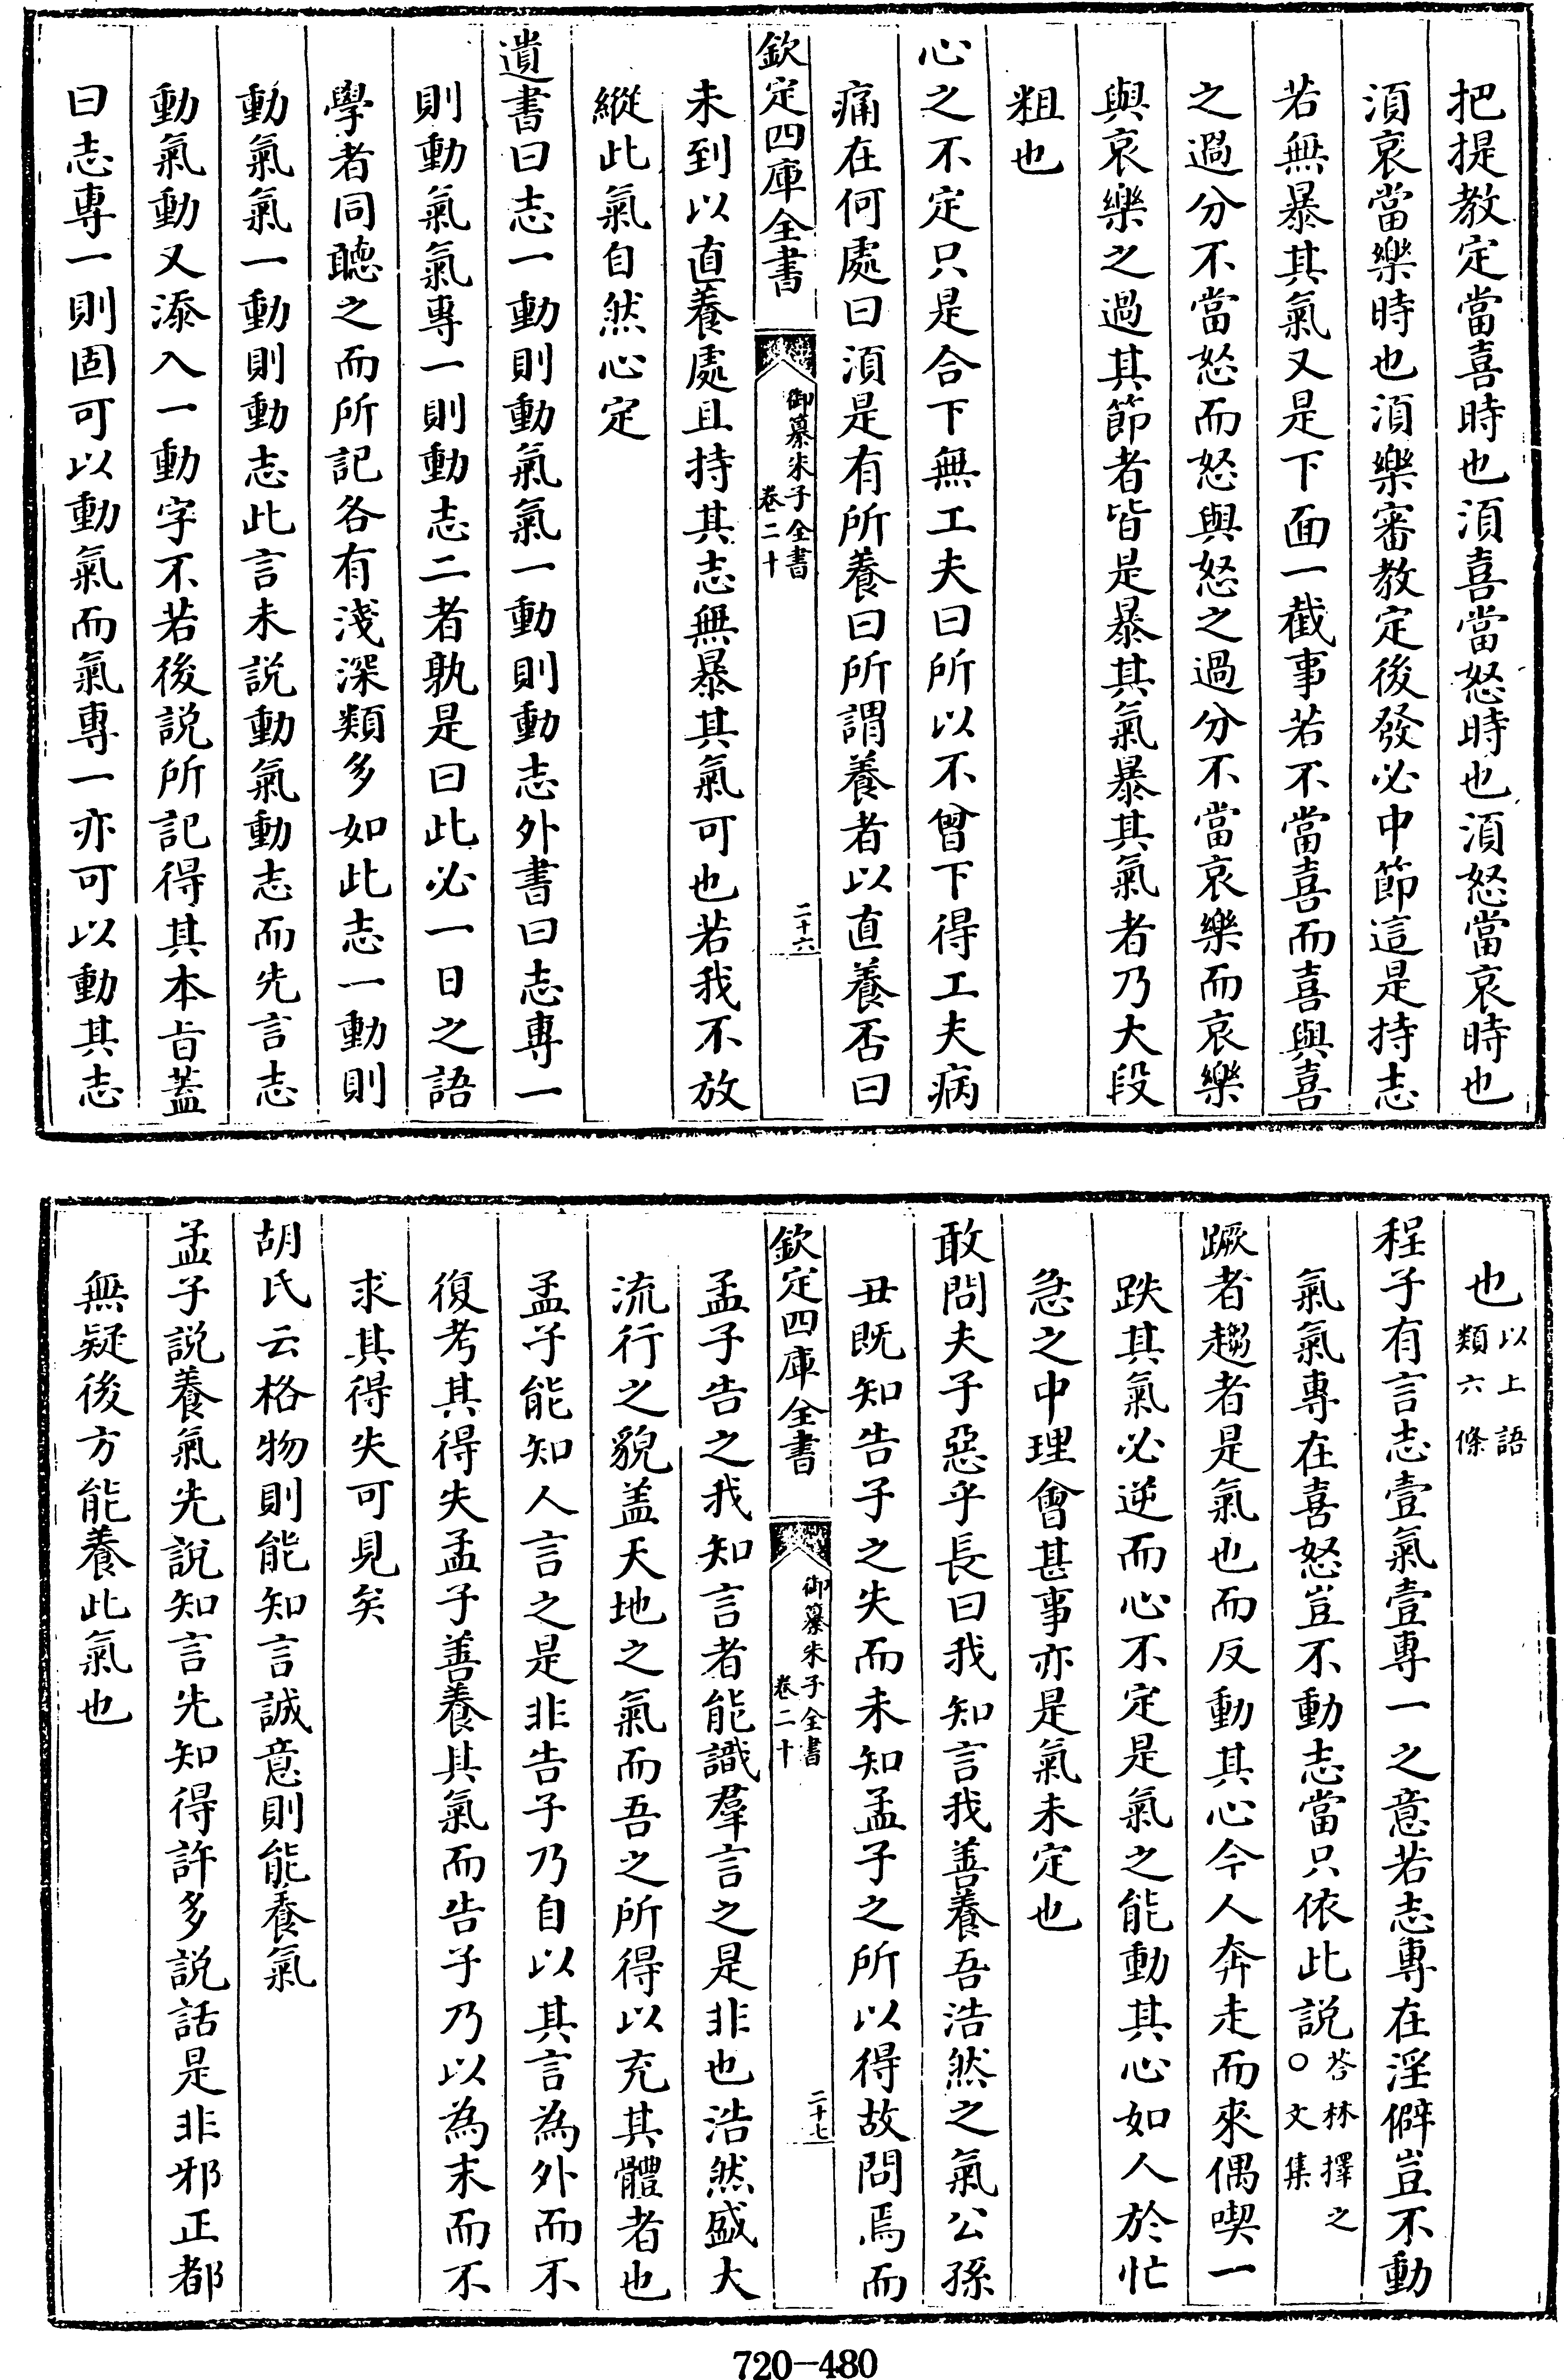 把提教定當喜時也湏喜當怒時也湏怒當哀時也
湏哀當樂時也湏樂審教定後發必中節這是持志
若無暴其氣又是下面一截事若不當喜而喜與喜
之過分不當怒而怒與怒之過分不當哀樂而哀樂
與哀樂之過其節者皆是暴其氣暴其氣者乃大段
粗也
心之不定只是合下無工夫曰所以不曾下得工夫病
痛在何處曰湏是有所養曰所謂養者以直養否曰
欽定四庫全書
御纂朱子全書
卷二十
二十六
未到以直養處且持其志無暴其氣可也若我不放
縱此氣自然心定
遺書曰志一動則動氣氣一動則動志外書曰志專一
則動氣氣專一則動志二者孰是曰此必一日之語
學者同聽之而所記各有淺深類多如此志一動則
動氣氣一動則動志此言未說動氣動志而先言志
動氣動又添入一動字不若後說所記得其本旨蓋
曰志專一則固可以動氣而氣專一亦可以動其志
也以上語
類六條
程子有言志壹氣壹專一之意若志專在淫僻豈不動
氣氣專在喜怒豈不動志當只依此說答林擇之
○文集
蹶者趨者是氣也而反動其心今人奔走而來偶喫一
跌其氣必逆而心不定是氣之能動其心如人於忙
急之中理會甚事亦是氣未定也
敢問夫子惡乎長曰我知言我善養吾浩然之氣公孫
丑既知告子之失而未知孟子之所以得故問焉而
欽定四庫全書
御纂朱子全書
卷二十
二十七
孟子告之我知言者能識羣言之是非也浩然盛大
流行之貌盖天地之氣而吾之所得以充其體者也
孟子能知人言之是非告子乃自以其言為外而不
復考其得失孟子善養其氣而告子乃以為末而不
求其得失可見矣
胡氏云格物則能知言誠意則能養氣
孟子說養氣先說知言先知得許多說話是非邪正都
無疑後方能養此氣也
720-480